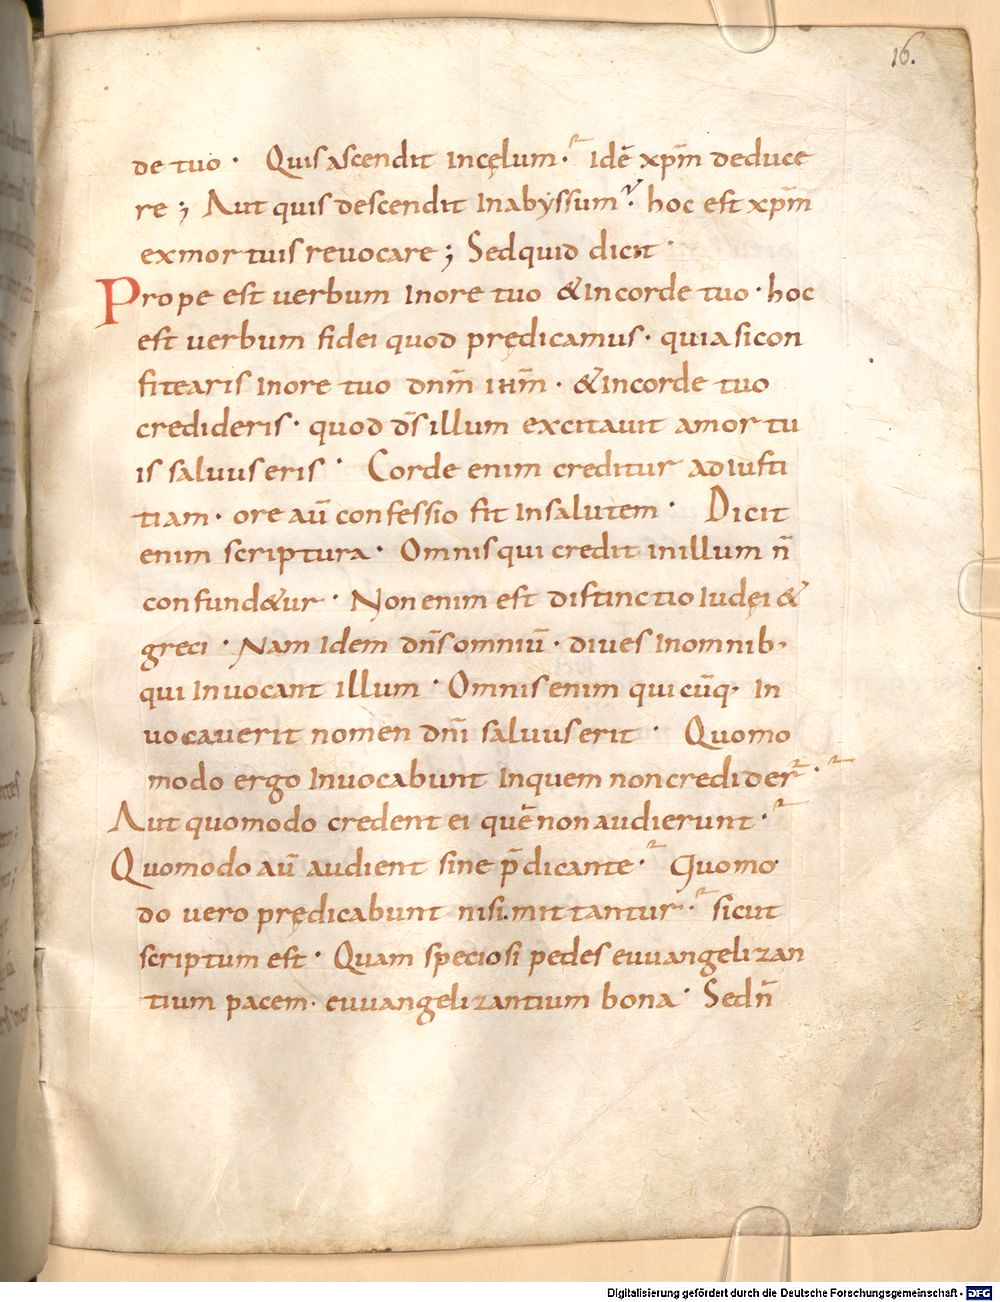 16.
de tuo · Quis ascendit Incęlum ·? Idē xp̄m deduce
re ; Aut quis descendit Inabyssum ·? hoc est xp̄m
exmortuis reuocare ; Sed quid dicit ·
Prope est uerbum Inore tuo & Incorde tuo · hoc
est uerbum fidei quod prędicamus · quia sicon
fitearis Inore tuo dn̄m ih̄m · & Incorde tuo
credideris · quod d̄s illum excitauit amortu
is saluus eris · Corde enim creditur adiusti
tiam · ore aū confessio fit Insalutem · Dicit
enim scriptura · Omnis qui credit inillum n̄
confund&ur · Non enim est distinctio Iudęi &
greci · Nam Idem dn̄s omniū · diues Inomnib·
qui Inuocant illum · Omnis enim quicūq· In
uocauerit nomen dn̄i saluus erit · Quomo
modo ergo Inuocabunt Inquem non credider̄ ·?
Aut quomodo credent ei quē non audierunt ·?
Quomodo aū audient sine p̄dicante ·? Quomo
do uero prędicabunt nisi mittantur ·? sicut
scriptum est · Quam speciosi pedes euuangelizan
tium pacem · euuangelizantium bona · Sed n̄
Digitalisierung gefördert durch die Deutsche Forschungsgemeinschaft - DFG